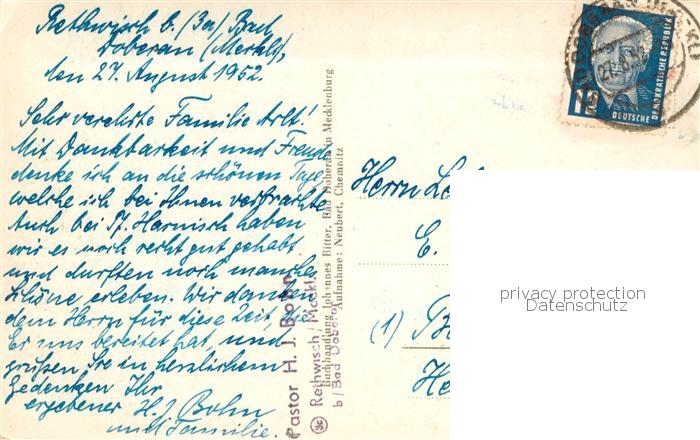 Rethwisch b. (3a) Bad
Doberan (Meckl),
den 27. August 1952.
Sehr verehrte Familie Arlt!
Mit Dankbarkeit und Freude
denke ich an die schönen Tage,
welche ich bei Ihnen verbrachte.
Auch bei P. Harnisch haben
wir es noch recht gut gehabt
und durften noch manches
Schöne erleben. Wir danken
dem Herrn für diese Zeit die
Er uns bereitet hat, und
grüßen Sie in herzlichem
Gedenken Ihr
ergebener H. J. Bohn
und Familie.
Pastor H. J. Bohn
(3a) Rethwisch / Meckl.
b / Bad Doberan
Buchhandlung Johannes Bitter, Bad Doberan in Mecklenburg
Aufnahme: Neubert, Chemnitz
10
DEUTSCHE
DEMOKRATISCHE REPUBLIK
27.8.52
Herrn
E.
(1)
privacy protection
Datenschutz